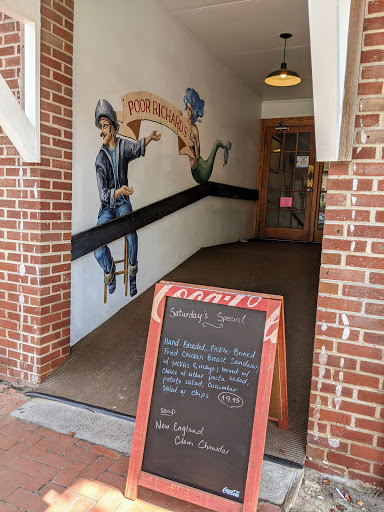 POOR RICHARD'S
Coca-Cola
Saturday's Special
Hand Breaded, Pickle-Brined
Fried Chicken Breast Sandwich
w/ pickles & mayo; served w/
choice of either pasta salad,
potato salad, cucumber
salad or chips 19.95
Soup
New England
Clam Chowder
Coca-Cola